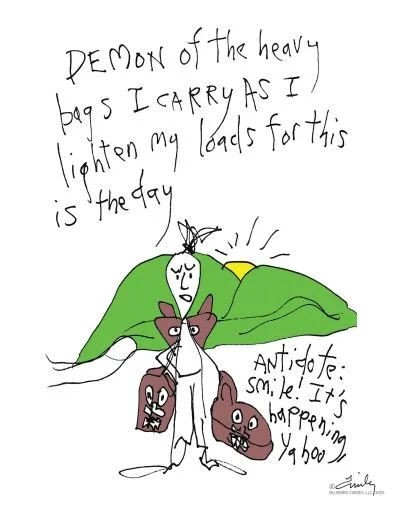 DEMON of the heavy
bags I CARRY AS I
lighten my loads for this
is the day
Antidote:
smile! It's
happening
Yahoo
©
BLUEBIRD FARMS, LLC 2023